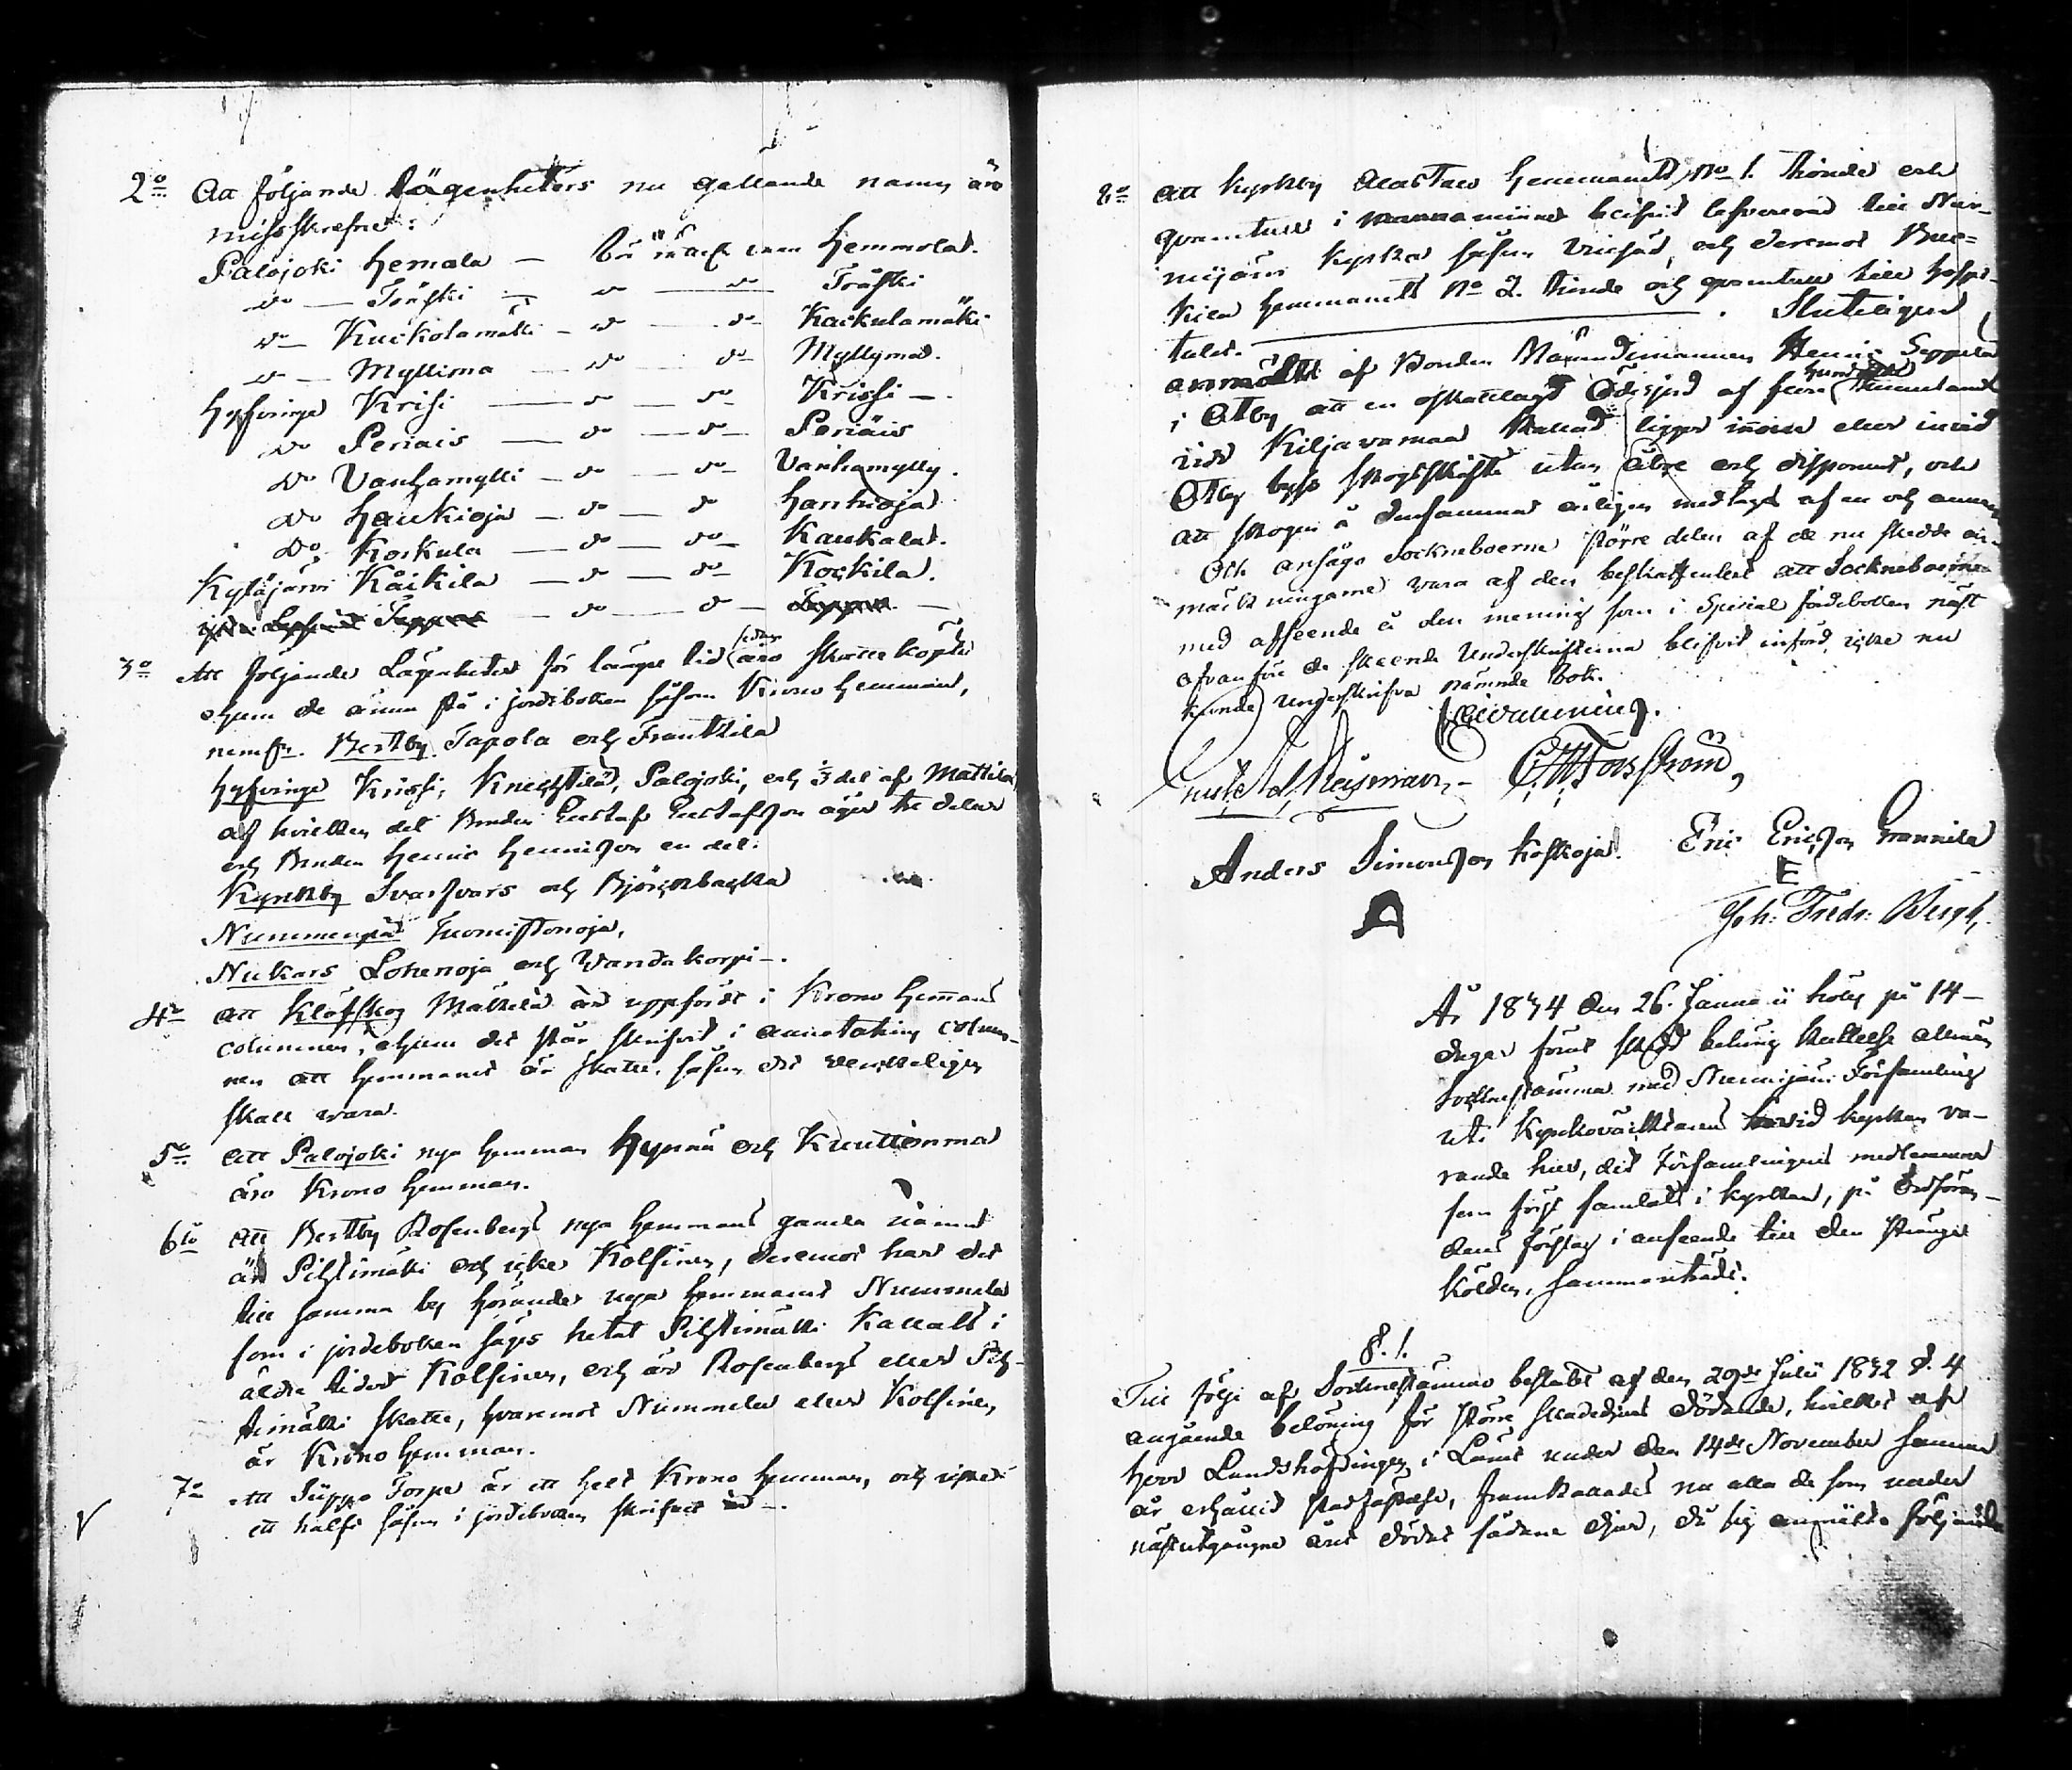 2o Att följande Lägenheters nu gällande namn äro
misskrefne:
Palojoki Hemala — bör märkt vara Hemmola.
do — Träski — do — do Träski
do — Kuckolamäki — do — do Kackulamäki
do — Myllima — do — do Myllymä.
Hyfvinge Krisi — do — do Krissi —
do Periais — do — do Periäis
do Vanhamylli — do — do Vanhamylly.
do Haukioja — do — do Hanhioja
do Koskula — do — do Kaukola.
Kyläjärvi Kåikila — do — do Kockila.
3o Att följande Lägenheter för längre tid sedan äro skatteköpte
ehuru de ännu stå i jordeboken såsom Krono hemman,
nemln. Bertby Tapola och Franttila
Hyfvinge Krissi, Knecktilä, Palojoki, och 1/3 del af Mattila,
af hvilken del Bonden Gustaf Gustafsson äger tre delar
och Bonden Henric Henricsson en del.
Kyrkby Svarfvars och Björckbacka
Nummenpää Tuomistonoja,
Nukars Lohenoja och Wandakorpi —.
4o Att Klöfskog Mattila är uppfördt i Krono hemmans
columnen, ehuru det står skrifvit i annotations colum-
nen att hemmanet är skatte, såsom det verkeligen
skall vara.
5o Att Palojoki nya hemman Hynnä och Kuuttinmaa
äro Krono hemman.
6to Att Bertby Rosenbergs nya hemmans gamla namn
är Pihstimäki och icke Kolsinen, deremot har det
till samma by hörande nya hemmanet Nummela
som i jordeboken säges hetat Pihstimäki kallats i
äldre tider Kolsinen, och är Rosenbergs eller Pih-
timäki skatte, hvaremot Nummela eller Kolsinen
är Krono hemman.
7o Att Süppo Torpa är ett helt Krono hemman, och icke
ett halft såsom i jordeboken skrifvet är —.
V
8o Att Kyrkby Alastalo hemmanets No 1. tionde och
qvarntull i manna minne blifvit lefvererad till Nur-
mijärvi Kyrka såsom , och deremot
kila hemmanets No 2. tionde och qvarntull till hospi-
talet. — Sluteligen
anmältes af Bonden Nämndemannen Henric Seppälä
i Otby att en oskattlagd Ödesjord af flere hundrade tunnland
vid Kiljavamaa kallad ligger innom eller invid
Otby bys skogsskifte utan åbo och disponent, och
att skogen å densamma årligen medtages af en och annan
Och ansågo Sockneboerne större delen af de nu skedde an-
märkningarne vara af den beskaffenhet att Sockneboerne
med afseende å den mening som i Special Jordeboken näst
ofvanför de skeende Underskrifterna blifvit införd, icke nu
kunde underskrifva nämnde bok.
Anders Simonsson Koskoja. Eric Ericsson Grannila
A E
Joh: Fredr: Bergh.
År 1834 den 26 Januarii hölts på 14 —
dagar förut skedd behörig kallelse allmän
Sockenstämma med Nurmijärvi Församling
uti Kyrkoväktarens invid kyrkan va-
rande hus, dit Församlingens medlemmar
som förut samlats i kyrkan, på Ordföran-
dens förslag i anseende till den stränga
kölden, sammanträdt.
§. 1.
Till följe af Sockenstämmo beslutet af den 29de Julii 1832 §. 4
angående belöning för större skadedjurs dödande, hvilket af
Herr Landshöfdingen i Länet under den 14de November samma
år erhållit stadfästelse, framkallades nu alla de som under
näst utgångne året dödat sådane djur, då sig anmälte följande